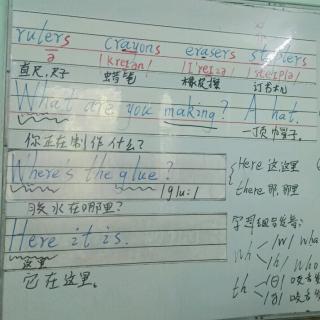 rulers crayons erasers staplers
ə /kreɪən/ /ɪ'reɪzə/ /steɪplə/
直尺,尺子 蜡笔 橡皮擦 订书机
What are you making? A hat.
你正在制作什么? 一顶帽子。
Where's the glue?
/glu:/
胶水在哪里?
Here it is.
这里
它在这里。
Here 这,这里
there 那,那里
学习组合发音:
wh /w/ wha
/h/ who
th /θ/ 咬舌
/ð/ 咬舌